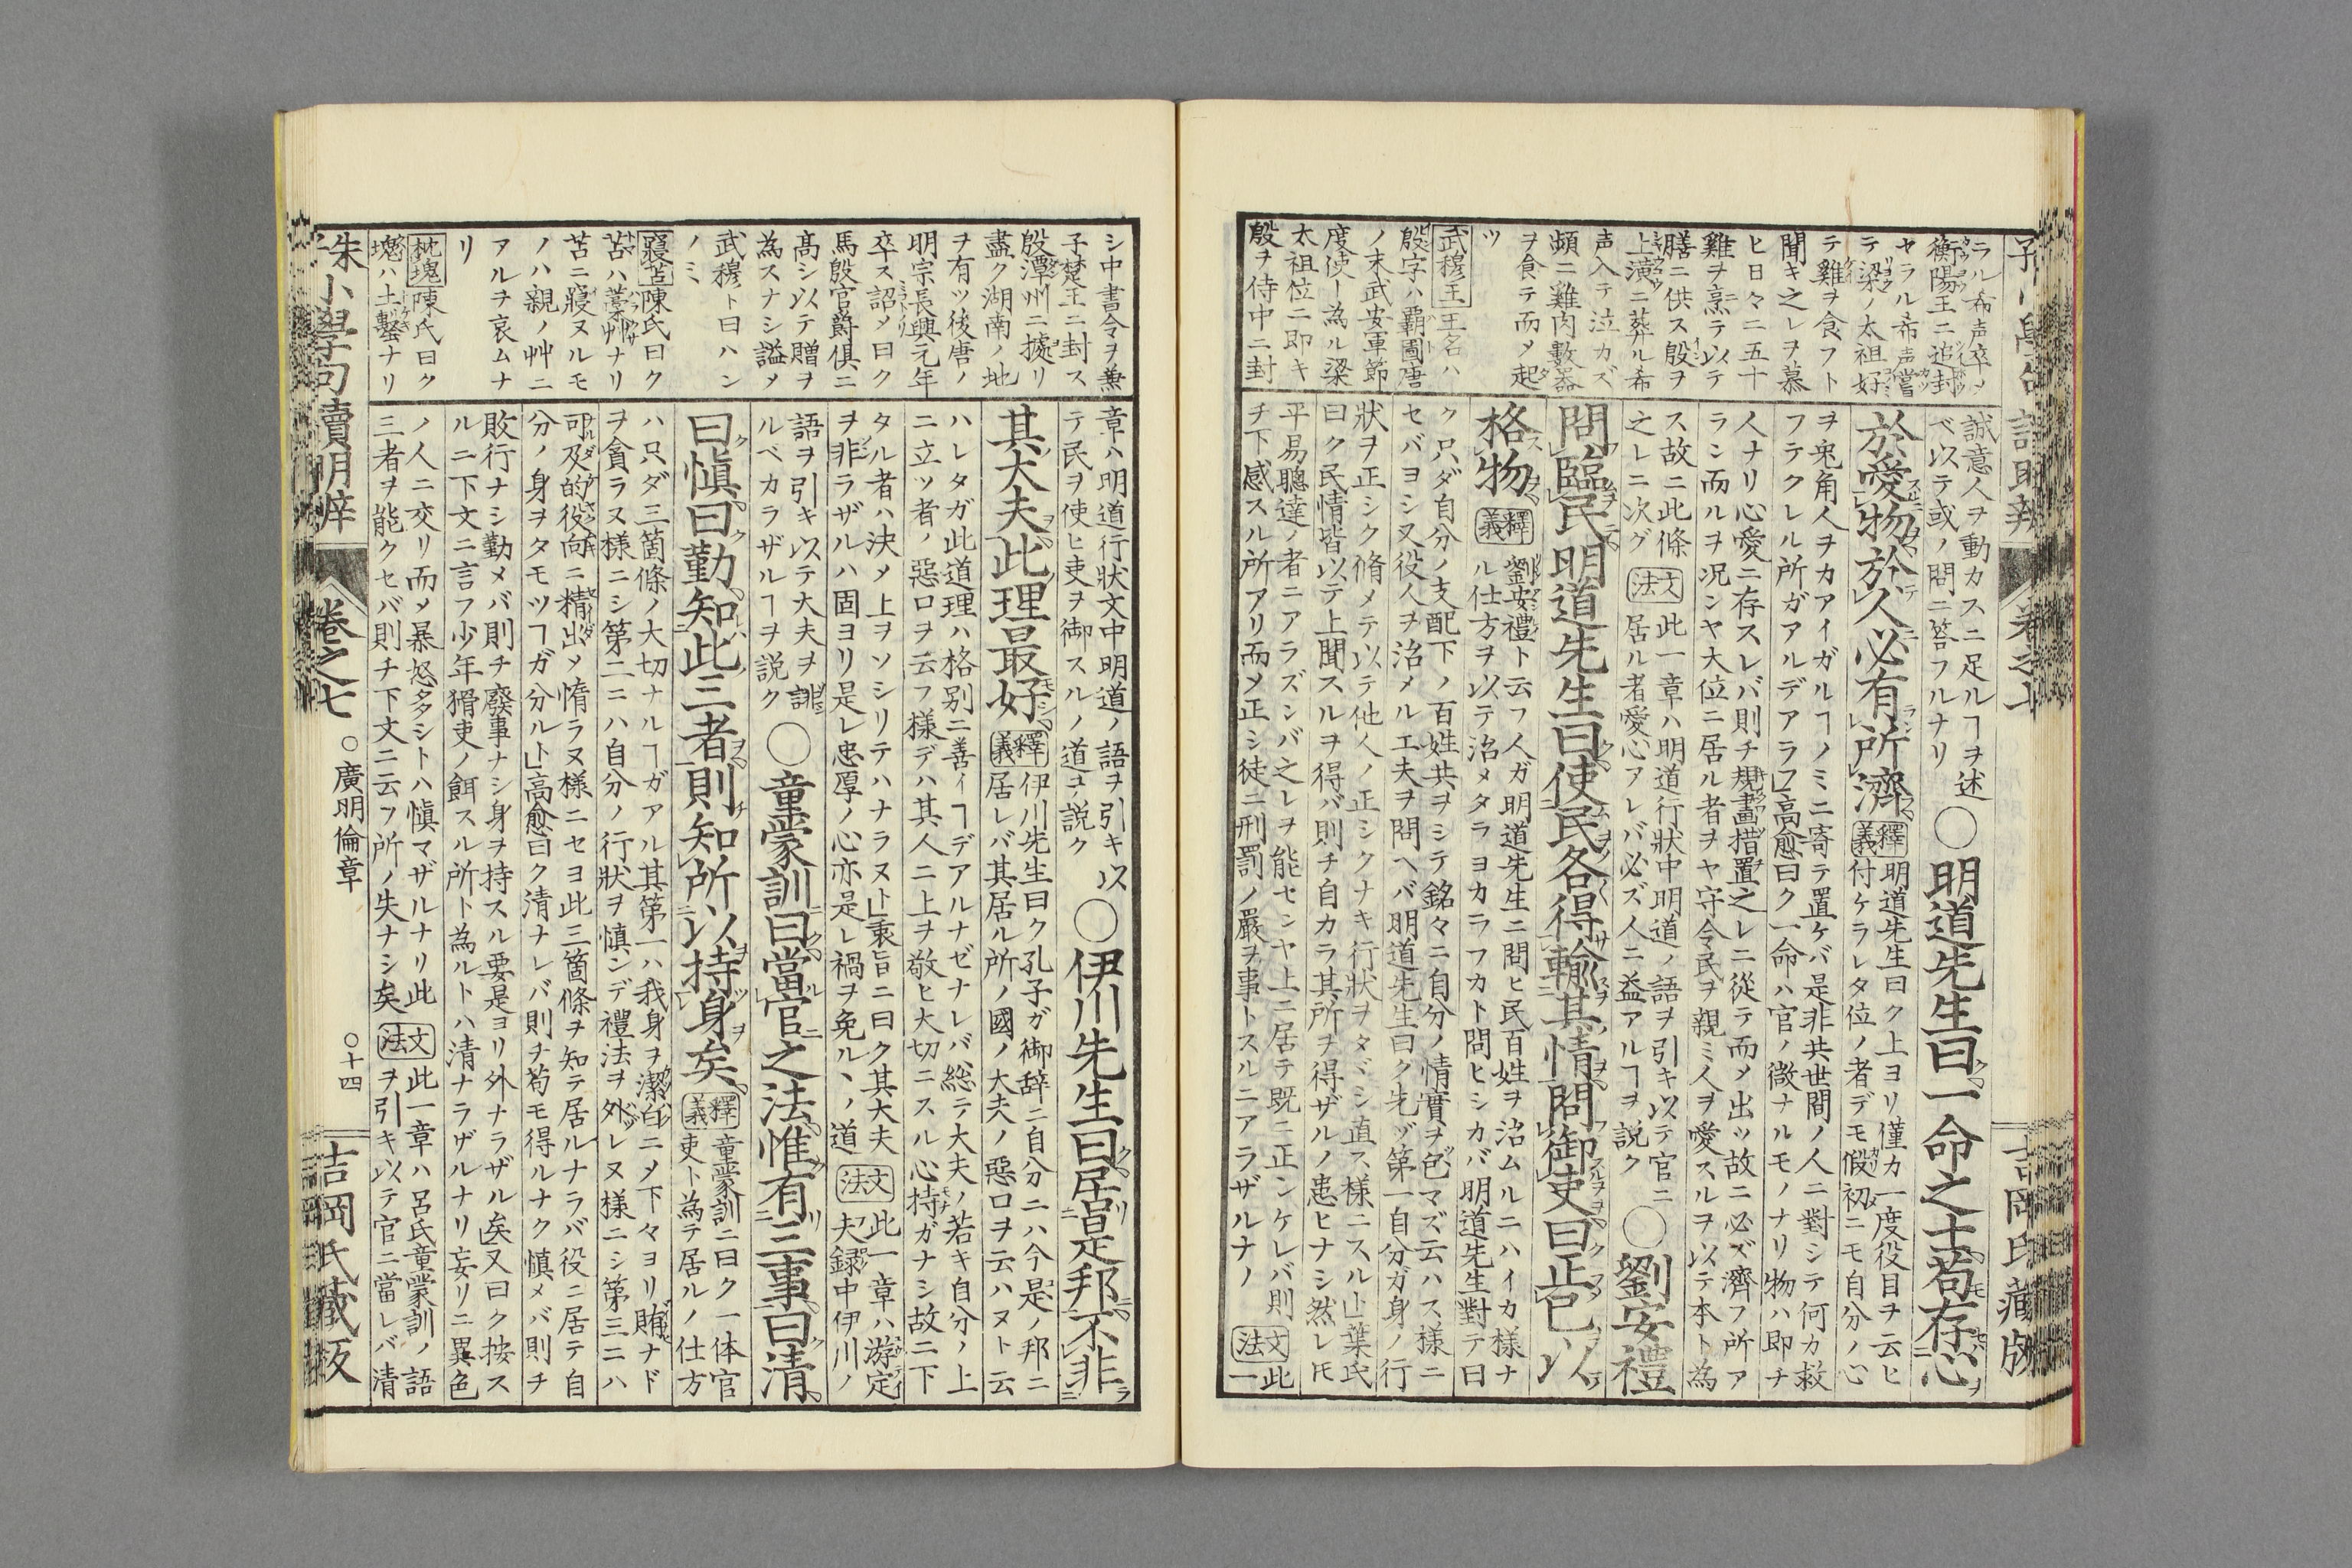 ラル希声卒メ
衡陽王ニ追封
セラル希声嘗
テ梁ノ太祖好
テ雞ヲ食フト
聞キ之レヲ慕
ヒ日々ニ五十
雞ヲ烹テ以テ
膳ニ供ス殷ヲ
上潢ニ葬ル希
声入テ泣カズ
頓ニ雞肉數器
ヲ食テ而メ起
ツ
武穆王王名ハ
殷字ハ覇圖唐
ノ末武安軍節
度使ト為ル梁
太祖位ニ即キ
殷ヲ侍中ニ封
誠意人ヲ動カスニ足ルヿヲ述
ベ以テ或ノ問ニ答フルナリ
〇明道先生曰一命之士苟存心
於愛物於人必有所濟
釋義 明道先生曰ク上ヨリ僅カ一度役目ヲ云ヒ
付ケラレタ位ノ者デモ假初ニモ自分ノ心
ヲ鬼角人ヲカアイガルヿノミニ寄テ置ケバ是非共世間ノ人ニ對シテ何カ救
フテクレル所ガアルデアラフ」高愈曰ク一命ハ官ノ微ナルモノナリ物ハ即チ
人ナリ心愛ニ存スレバ則チ規畫措置之レニ從テ而メ出ツ故ニ必ズ濟フ所ア
ラン而ルヲ况ンヤ大位ニ居ル者ヲヤ守令民ヲ親ミ人ヲ愛スルヲ以テ本ト為
ス故ニ此條
之レニ次グ
文法 此一章ハ明道行狀中明道ノ語ヲ引キ以テ官ニ
居ル者愛心アレバ必ズ人ニ益アルヿヲ説ク
〇劉安禮
問臨民明道先生曰使民各得輸其情問御吏曰正己以
格物
釋義 劉安禮ト云フ人ガ明道先生ニ問ヒ民百姓ヲ治ムルニハイカ様ナ
ル仕方ヲ以テ治メタラヨカラフカト問ヒシカバ明道先生對テ曰
ク只ダ自分ノ支配下ノ百姓共ヲシテ銘々ニ自分ノ情實ヲ包マズ云ハス様ニ
セバヨシ又役人ヲ治メル工夫ヲ問ヘバ明道先生曰ク先ヅ第一自分ガ身ノ行
狀ヲ正シク脩メテ以テ他人ノ正シクナキ行狀ヲタヾシ直ス様ニスル」葉氏
曰ク民情皆以テ上聞スルヲ得バ則チ自カラ其所ヲ得ザルノ患ヒナシ然レ𪜈
平易聰達ノ者ニアラズンバ之レヲ能センヤ上ニ居テ既ニ正ンケレバ則
チ下感スル所アリ而メ正シ徒ニ刑罰ノ嚴ヲ事トスルニアラザルナノ
文法 此一
シ中書令ヲ兼
子楚王ニ封ス
殷潭州ニ據リ
盡ク湖南ノ地
ヲ有ツ後唐ノ
明宗長興元年
卒ス詔メ曰ク
馬殷官爵俱ニ
髙シ以テ贈ヲ
為スナシ謚メ
武穆ト曰ハン
ノミ
寢苫陳氏曰ク
苫ハ藁艸ナリ
苫ニ寢ヌルモ
ノハ親ノ艸ニ
アルヲ哀ムナ
リ
枕塊陳氏曰ク
塊ハ土墼ナリ
章ハ明道行狀文中明道ノ語ヲ引キ以
テ民ヲ使ヒ吏ヲ御スルノ道ヲ説ク
〇伊川先生曰居是邦不非
其大夫此理最好
釋義 伊川先生曰ク孔子ガ御辞ニ自分ニハ今是ノ邦ニ
居レバ其居ル所ノ國ノ大夫ノ惡口ヲ云ハヌト云
ハレタガ此道理ハ格別ニ善イヿデアルナゼナレバ総テ大夫ノ若キ自分ノ上
ニ立ツ者ノ惡口ヲ云フ様デハ其人ニ上ヲ敬ヒ大切ニスル心持ガナシ故ニ下
タル者ハ決メ上ヲソシリテハナラヌト」衷旨ニ曰ク其大夫
ヲ非ラザルハ固ヨリ是レ忠厚ノ心亦是レ禍ヲ免ルヽノ道
文法 此一章ハ游定
夫録中伊川ノ
語ヲ引キ以テ大夫ヲ誹
ルベカラザルヿヲ説ク
〇童蒙訓曰當官之法惟有三事曰清
曰愼曰勤知此三者則知所以持身矣
釋義 童蒙訓ニ曰ク一体官
吏ト為テ居ルノ仕方
ハ只ダ三箇條ノ大切ナルヿガアル其第一ハ我身ヲ潔白ニメ下々ヨリ賄ナド
ヲ貪ラヌ様ニシ第二ニハ自分ノ行狀ヲ慎ンデ禮法ヲ外レヌ様ニシ第三ニハ
可及的役向ニ精出メ惰ラヌ様ニセヨ此三箇條ヲ知テ居ルナラバ役ニ居テ自
分ノ身ヲタモツヿガ分ルト」高愈曰ク清ナレバ則チ苟モ得ルナク慎メバ則チ
敗行ナシ勤メバ則チ廢事ナシ身ヲ持スル要是ヨリ外ナラザル矣」又曰ク按ス
ルニ下文ニ言フ少年猾吏ノ餌スル所ト為ルトハ清ナラザルナリ妄リニ異色
ノ人ニ交リ而メ暴怒多シトハ慎マザルナリ此
三者ヲ能クセバ則チ下文ニ云フ所ノ失ナシ矣
文法 此一章ハ呂氏童蒙訓ノ語
ヲ引キ以テ官ニ當レバ清
朱子小學句讀明辨 卷之七 〇廣明倫章 〇十四 吉岡氏藏板